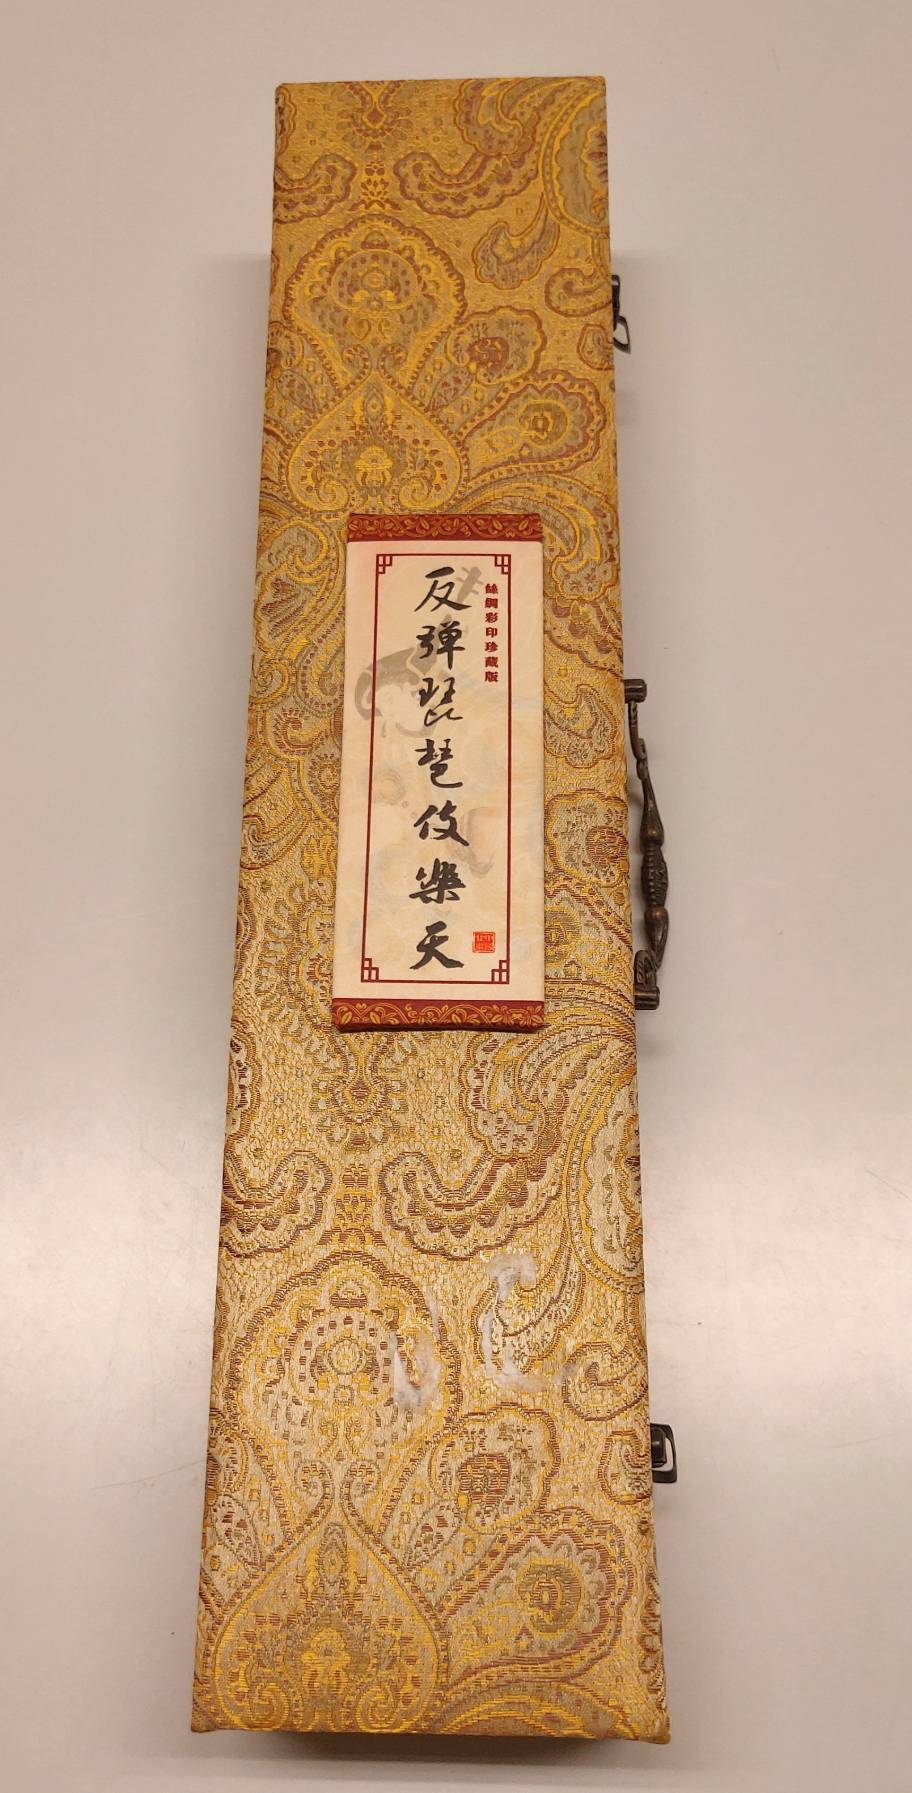 絲綢彩印珍藏版
反弹琵琶伎樂天